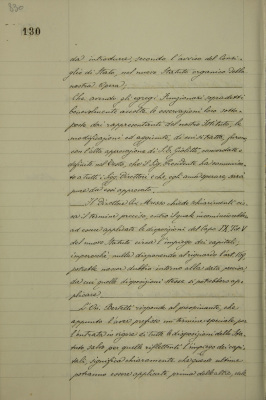 130
da introdurre, secondo l'avviso del Consi-
glio di Stato, nel nuovo Statuto organico della
nostra Opera.
Che avendo gli egregi Funzionari sopradetti
benevolmente accolte le osservazioni loro sotto-
poste dai rappresentanti del nostro Istituto, le
modificazioni ed aggiunte, di cui trattasi, furono
con l'alta approvazione di S.E. Giolitti, concordate e
definite nel testo, che il Sig. Presidente ha comunica-
to a tutti i Sig. Direttori e che, egli anzi spera, sarà
pure da essi approvato.
Il Direttore Cav. chiede chiarimenti cir-
ca il termine preciso, entro il quale incomincerebbe
ad essere applicate le disposizioni del Capo IX, Tit. V
del nuovo Statuto circa l'impiego dei capitali,
imperocchè, nulla disponendo al riguardo l'art. 109,
potrebbe nascer dubbio intorno alla data, precisa,
da cui quelle disposizioni stesse si potrebbero ap-
plicare.
Il Cav. Bertetti risponde al preopinante, che
appunto l'aver prefisso un termine generale per
l'entrata in vigore di tutte le disposizioni dello Sta-
tuto salvo, per quelle riflettenti l'impiego dei capi-
tali, significa chiaramente che queste ultime
potranno essere applicate prima delle altre,